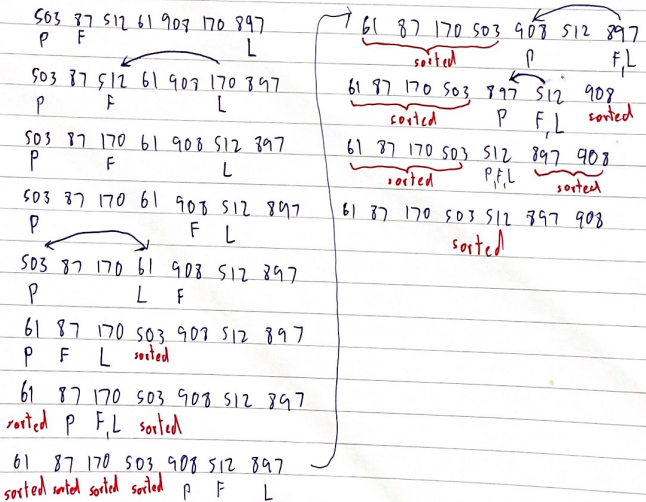 503 87 512 61 908 170 897
P F L
503 87 512 61 908 170 897
P F L
503 87 170 61 908 512 897
P F L
503 87 170 61 908 512 897
P F L
503 87 170 61 908 512 897
P L F
61 87 170 503 908 512 897
P F L sorted
61 87 170 503 908 512 897
sorted P F,L sorted
61 87 170 503 908 512 897
sorted sorted sorted sorted P F L
61 87 170 503 908 512 897
sorted P F,L
61 87 170 503 897 512 908
sorted P F,L sorted
61 87 170 503 512 897 908
sorted P,F,L sorted
61 87 170 503 512 897 908
sorted